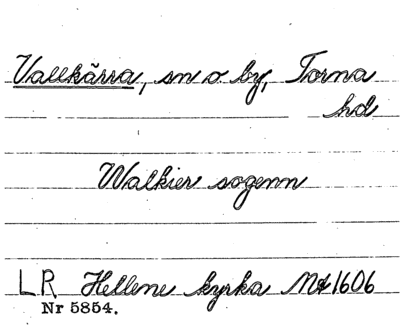 Vallkärra, sn o. by, Torna
hd
Walkier sogenn
LR Hellene kyrka 1606
Nr 5854.